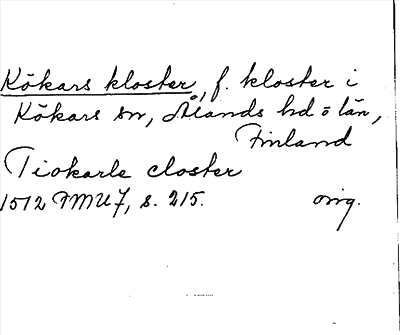 Kökars kloster, f. kloster i
Kökars sn, Ålands hd o län,
Finland
Tiokarle closter
1512 FMU 7, s. 215. orig.